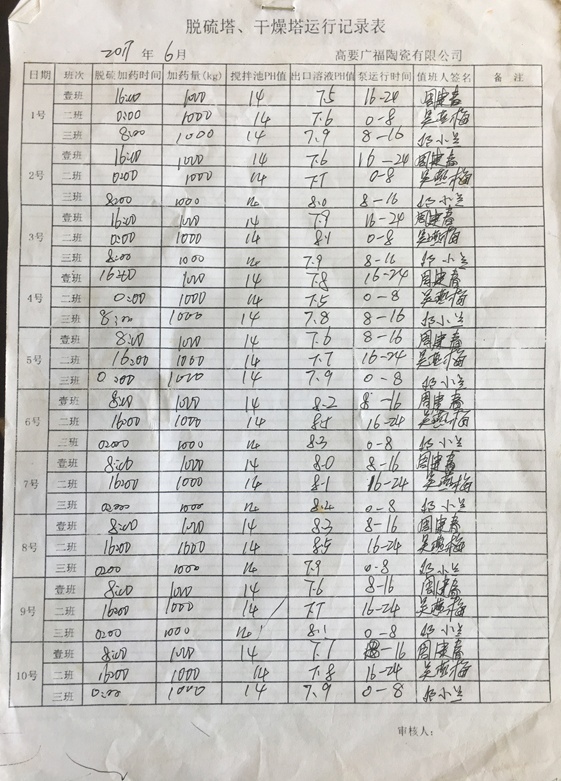 脱硫塔、干燥塔运行记录表
2017 年 6月 高要广福陶瓷有限公司
日期 班次 脱硫加药时间 加药量(kg) 搅拌池PH值 出口溶液PH值 泵运行时间 值班人签名 备 注
1号 壹班 16:00 1000 14 7.5 16-24 周建春
二班 0:00 1000 14 7.6 0-8 吴燕梅
三班 8:00 1000 14 7.9 8-16 小兰
2号 壹班 16:00 1000 14 7.6 16-24 周建春
二班 0:00 1000 14 7.7 0-8 吴燕梅
三班 8:00 1000 14 8.0 8-16 小兰
3号 壹班 16:00 1000 14 7.9 16-24 周建春
二班 0:00 1000 14 8.1 0-8 吴燕梅
三班 8:00 1000 14 7.9 8-16 小兰
4号 壹班 16:00 1000 14 7.8 16-24 周建春
二班 0:00 1000 14 7.5 0-8 吴燕梅
三班 8:00 1000 14 7.8 8-16 小兰
5号 壹班 8:00 1000 14 7.6 8-16 周建春
二班 16:00 1000 14 7.7 16-24 吴燕梅
三班 0:00 1000 14 7.9 0-8 小兰
6号 壹班 8:00 1000 14 8.2 8-16 周建春
二班 16:00 1000 14 8.5 16-24 吴燕梅
三班 0:00 1000 14 8.3 0-8 小兰
7号 壹班 8:00 1000 14 8.0 8-16 周建春
二班 16:00 1000 14 8.1 16-24 吴燕梅
三班 0:00 1000 14 8.4 0-8 小兰
8号 壹班 8:00 1000 14 8.3 8-16 周建春
二班 16:00 1000 14 8.5 16-24 吴燕梅
三班 0:00 1000 14 7.9 0-8 小兰
9号 壹班 8:00 1000 14 7.6 8-16 周建春
二班 16:00 1000 14 7.7 16-24 吴燕梅
三班 0:00 1000 14 8.1 0-8 小兰
10号 壹班 8:00 1000 14 7.7 8-16 周建春
二班 16:00 1000 14 7.8 16-24 吴燕梅
三班 0:00 1000 14 7.9 0-8 小兰
审核人: